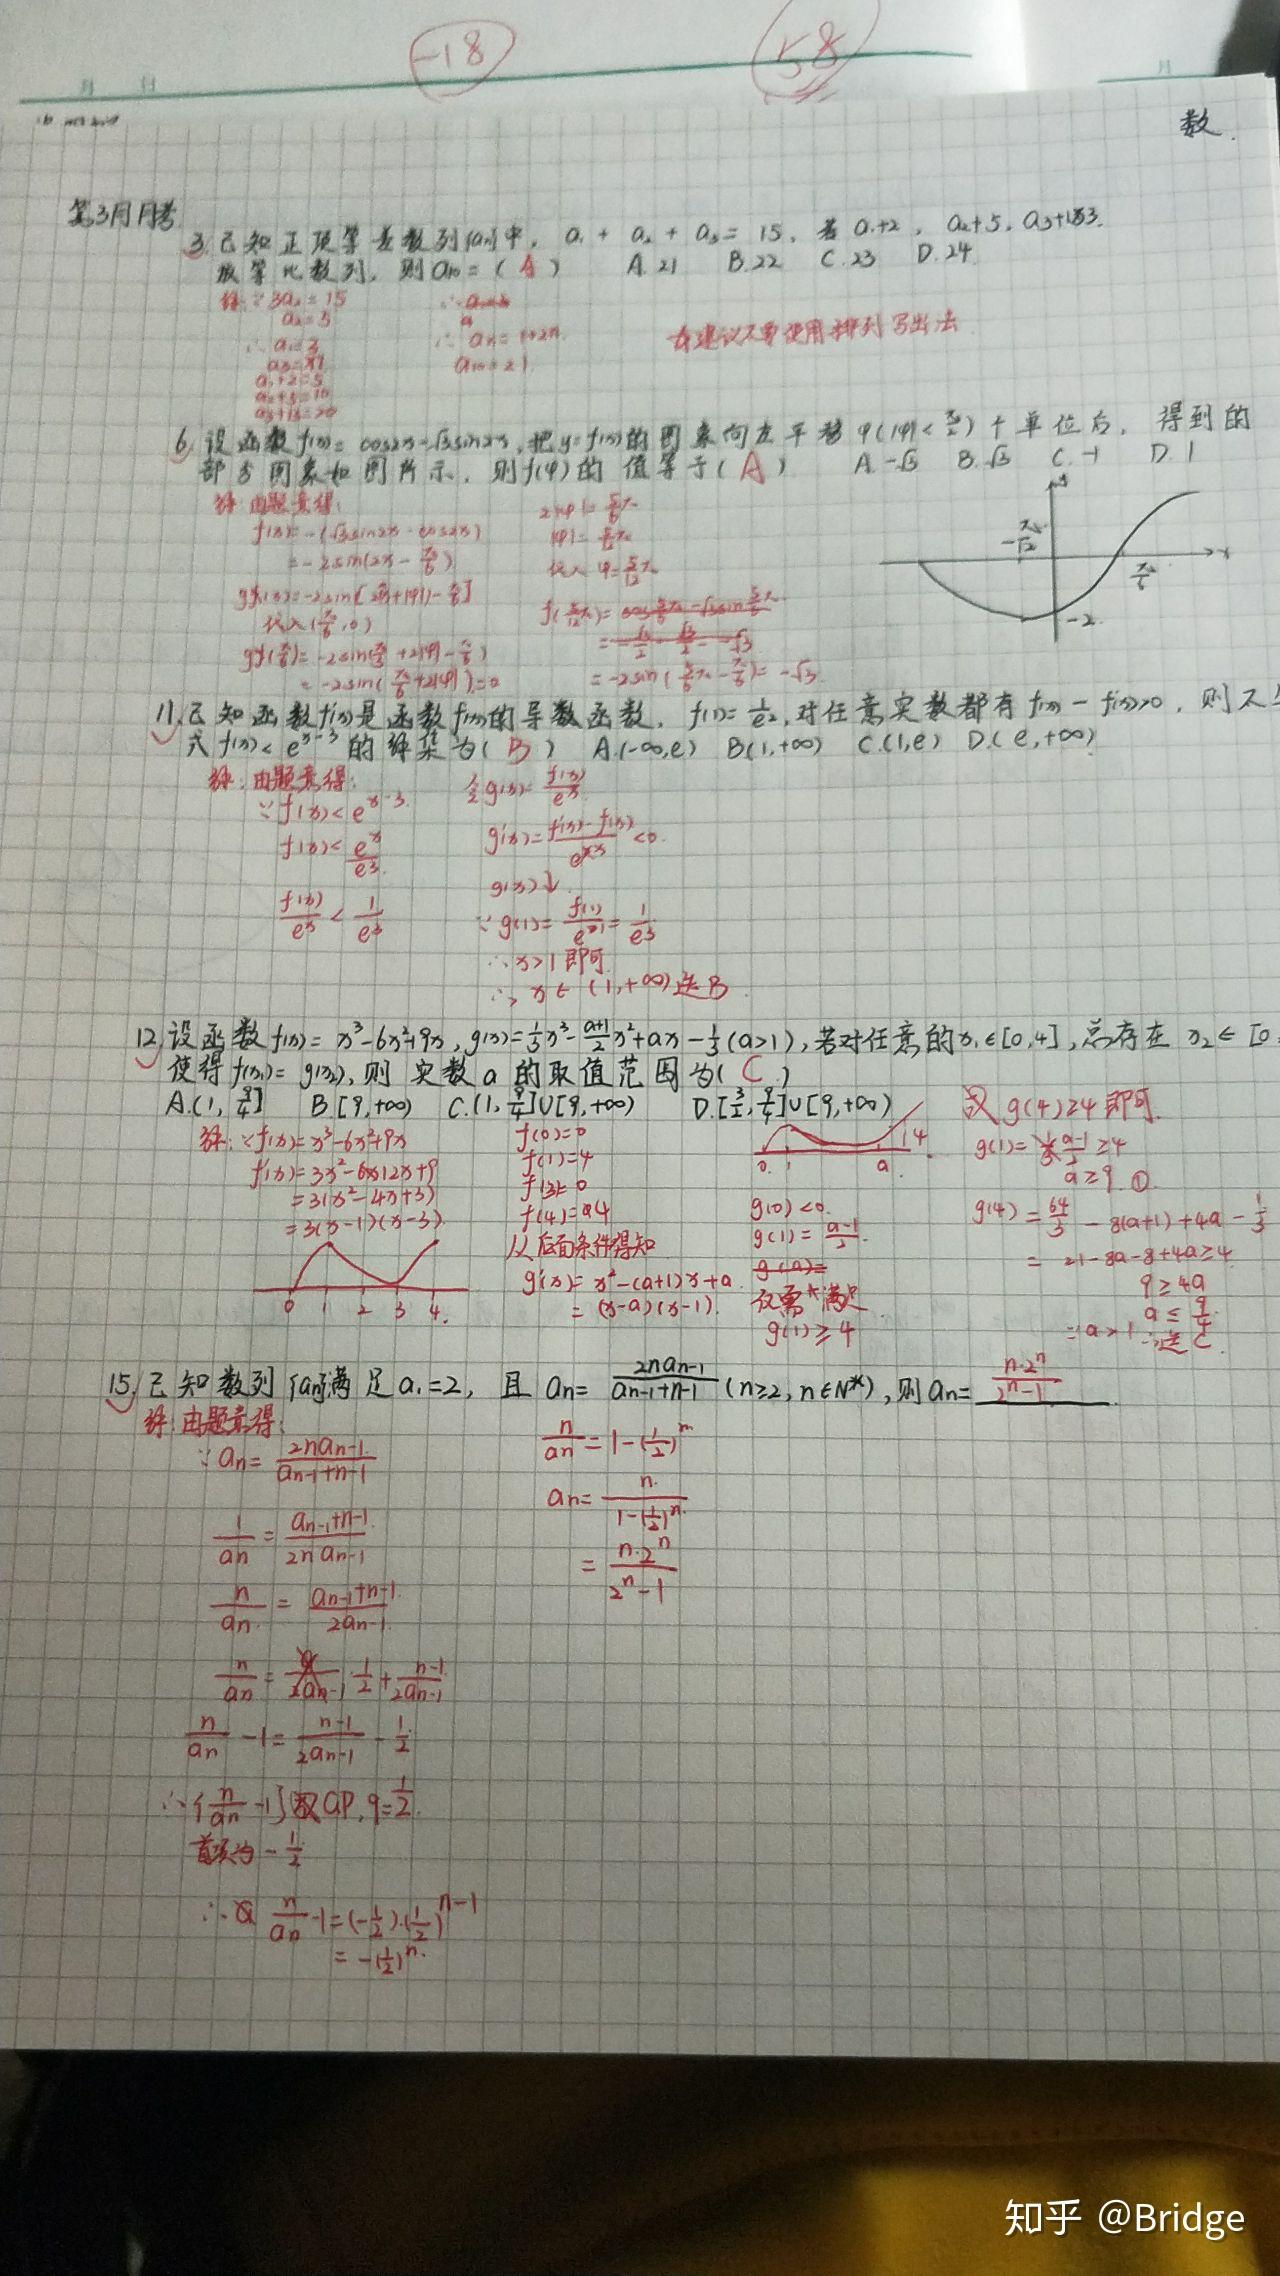 -18
58
月 日
月
数
第3月月考
3.已知正项等差数列{an}中，a₁+a₂+a₃=15，若a₁+2，a₂+5，a₃+13
成等比数列，则a₁₀=( A ) A.21 B.22 C.23 D.24
解:∵3a₂=15
a₂=5
∴a₁=3
a₃=7
a₁+2=5
a₂+5=10
a₃+13=20
∴an=1+2n
a₁₀=21
建议不要使用排列写出法
6.设函数f(x)=cos2x-√3sin2x,把y=f(x)的图象向左平移φ(|φ|<π/2)个单位后，得到的
部分图象如图所示，则f(φ)的值等于( A ) A.-√3 B.√3 C.-1 D.1
解:由题意得:
f(x)=-(√3sin2x-cos2x)
=-2sin(2x-π/6)
代入(π/6,0)
=-2sin(π/6+2|φ|)=0
2|φ|=5/6π
|φ|=5/12π
代入φ=5/12π
=-2sin(5/6π-π/6)=-√3
y
x
π/6
-2
11.已知函数f'(x)是函数f(x)的导数函数，f(1)=1/e²,对任意实数都有f(x)-f'(x)>0，则不
式f(x)<e^(x-3)的解集为( B ) A.(-∞,e) B.(1,+∞) C.(1,e) D.(e,+∞)
解:由题意得:
∵f(x)<e^(x-3)
f(x)<e^x/e³
f(x)/e^x<1/e³
令g(x)=f(x)/e^x
g'(x)=f'(x)-f(x)/e^x<0
g(x)↓
∵g(1)=f(1)/e=1/e³
∴x>1即可
∴x∈(1,+∞)选B
12.设函数f(x)=x³-6x²+9x,g(x)=1/3x³-(a+1)/2x²+ax-1/3(a>1),若对任意的x₁∈[0,4],总存在x₂∈[0,
使得f(x₁)=g(x₂),则实数a的取值范围为( C )
A.(1,9/4] B.[9,+∞) C.(1,9/4]∪[9,+∞) D.[3/2,9/4]∪[9,+∞)
解:∵f(x)=x³-6x²+9x
f'(x)=3x²-12x+9
=3(x²-4x+3)
=3(x-1)(x-3)
0 1 2 3 4
f(0)=0
f(1)=4
f(3)=0
f(4)=4
从后面条件得知
g'(x)=x²-(a+1)x+a
=(x-a)(x-1)
0 1 a 4
g(0)<0
g(1)=(a-1)/2
仅需满足
g(1)≥4
或g(4)≥4即可
g(1)=(a-1)/2≥4
a≥9 ①
g(4)=64/3-8(a+1)+4a-1/3
=21-8a-8+4a≥4
9≥4a
a≤9/4
∵a>1 ∴选C
15.已知数列{an}满足a₁=2，且an=2na(n-1)/(a(n-1)+n-1)(n≥2,n∈N*),则an=n·2^n/(2^n-1)
解:由题意得:
∵an=2na(n-1)/(a(n-1)+n-1)
1/an=(a(n-1)+n-1)/(2na(n-1))
n/an=(a(n-1)+n-1)/(2a(n-1))
n/an=1/2+(n-1)/(2a(n-1))
n/an-1=(n-1)/(2a(n-1))-1/2
∴{n/an-1}成GP,q=1/2
首项为-1/2
∴n/an-1=(-1/2)·(1/2)^(n-1)
=-(1/2)^n
n/an=1-(1/2)^n
an=n/(1-(1/2)^n)
=n·2^n/(2^n-1)
知乎 @Bridge